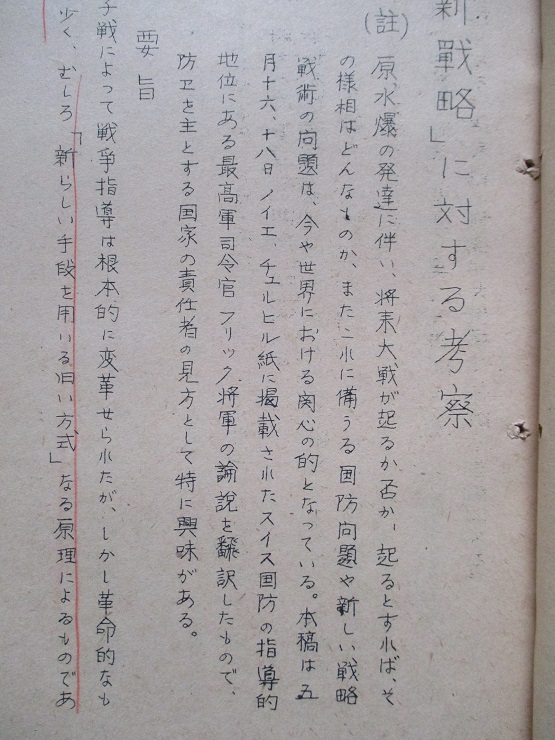 新戦略」に対する考察
(註)
原、水爆の発達に伴い、将来大戦が起るか否か、起るとすれば、そ
の様相はどんなものか、またこれに備うる国防問題や新しい戦略
戦術の問題は、今や世界における関心の的となっている。本稿は五
月十六、十八日ノイエ、チュルヒル紙に掲載されたスイス国防の指導的
地位にある最高軍司令官フリック将軍の論説を飜訳したもので、
防卫を主とする国家の責任者の見方として特に興味がある。
要旨
子戦によって戦争指導は根本的に変革せられたが、しかし革命的なも
少く、むしろ「新らしい手段を用いる旧い方式」なる原理によるものであ